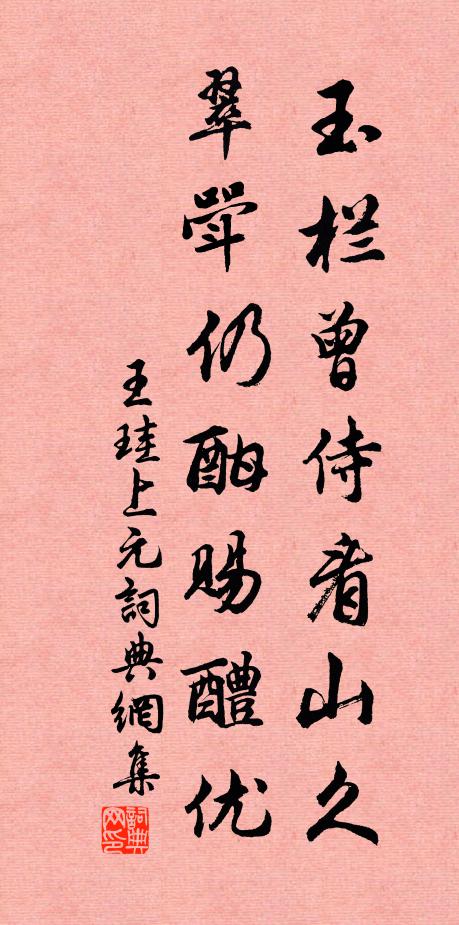 玉栏曾侍看山久
翠斝仍酣赐醴优
王珪上元詞典網集
詞典网印